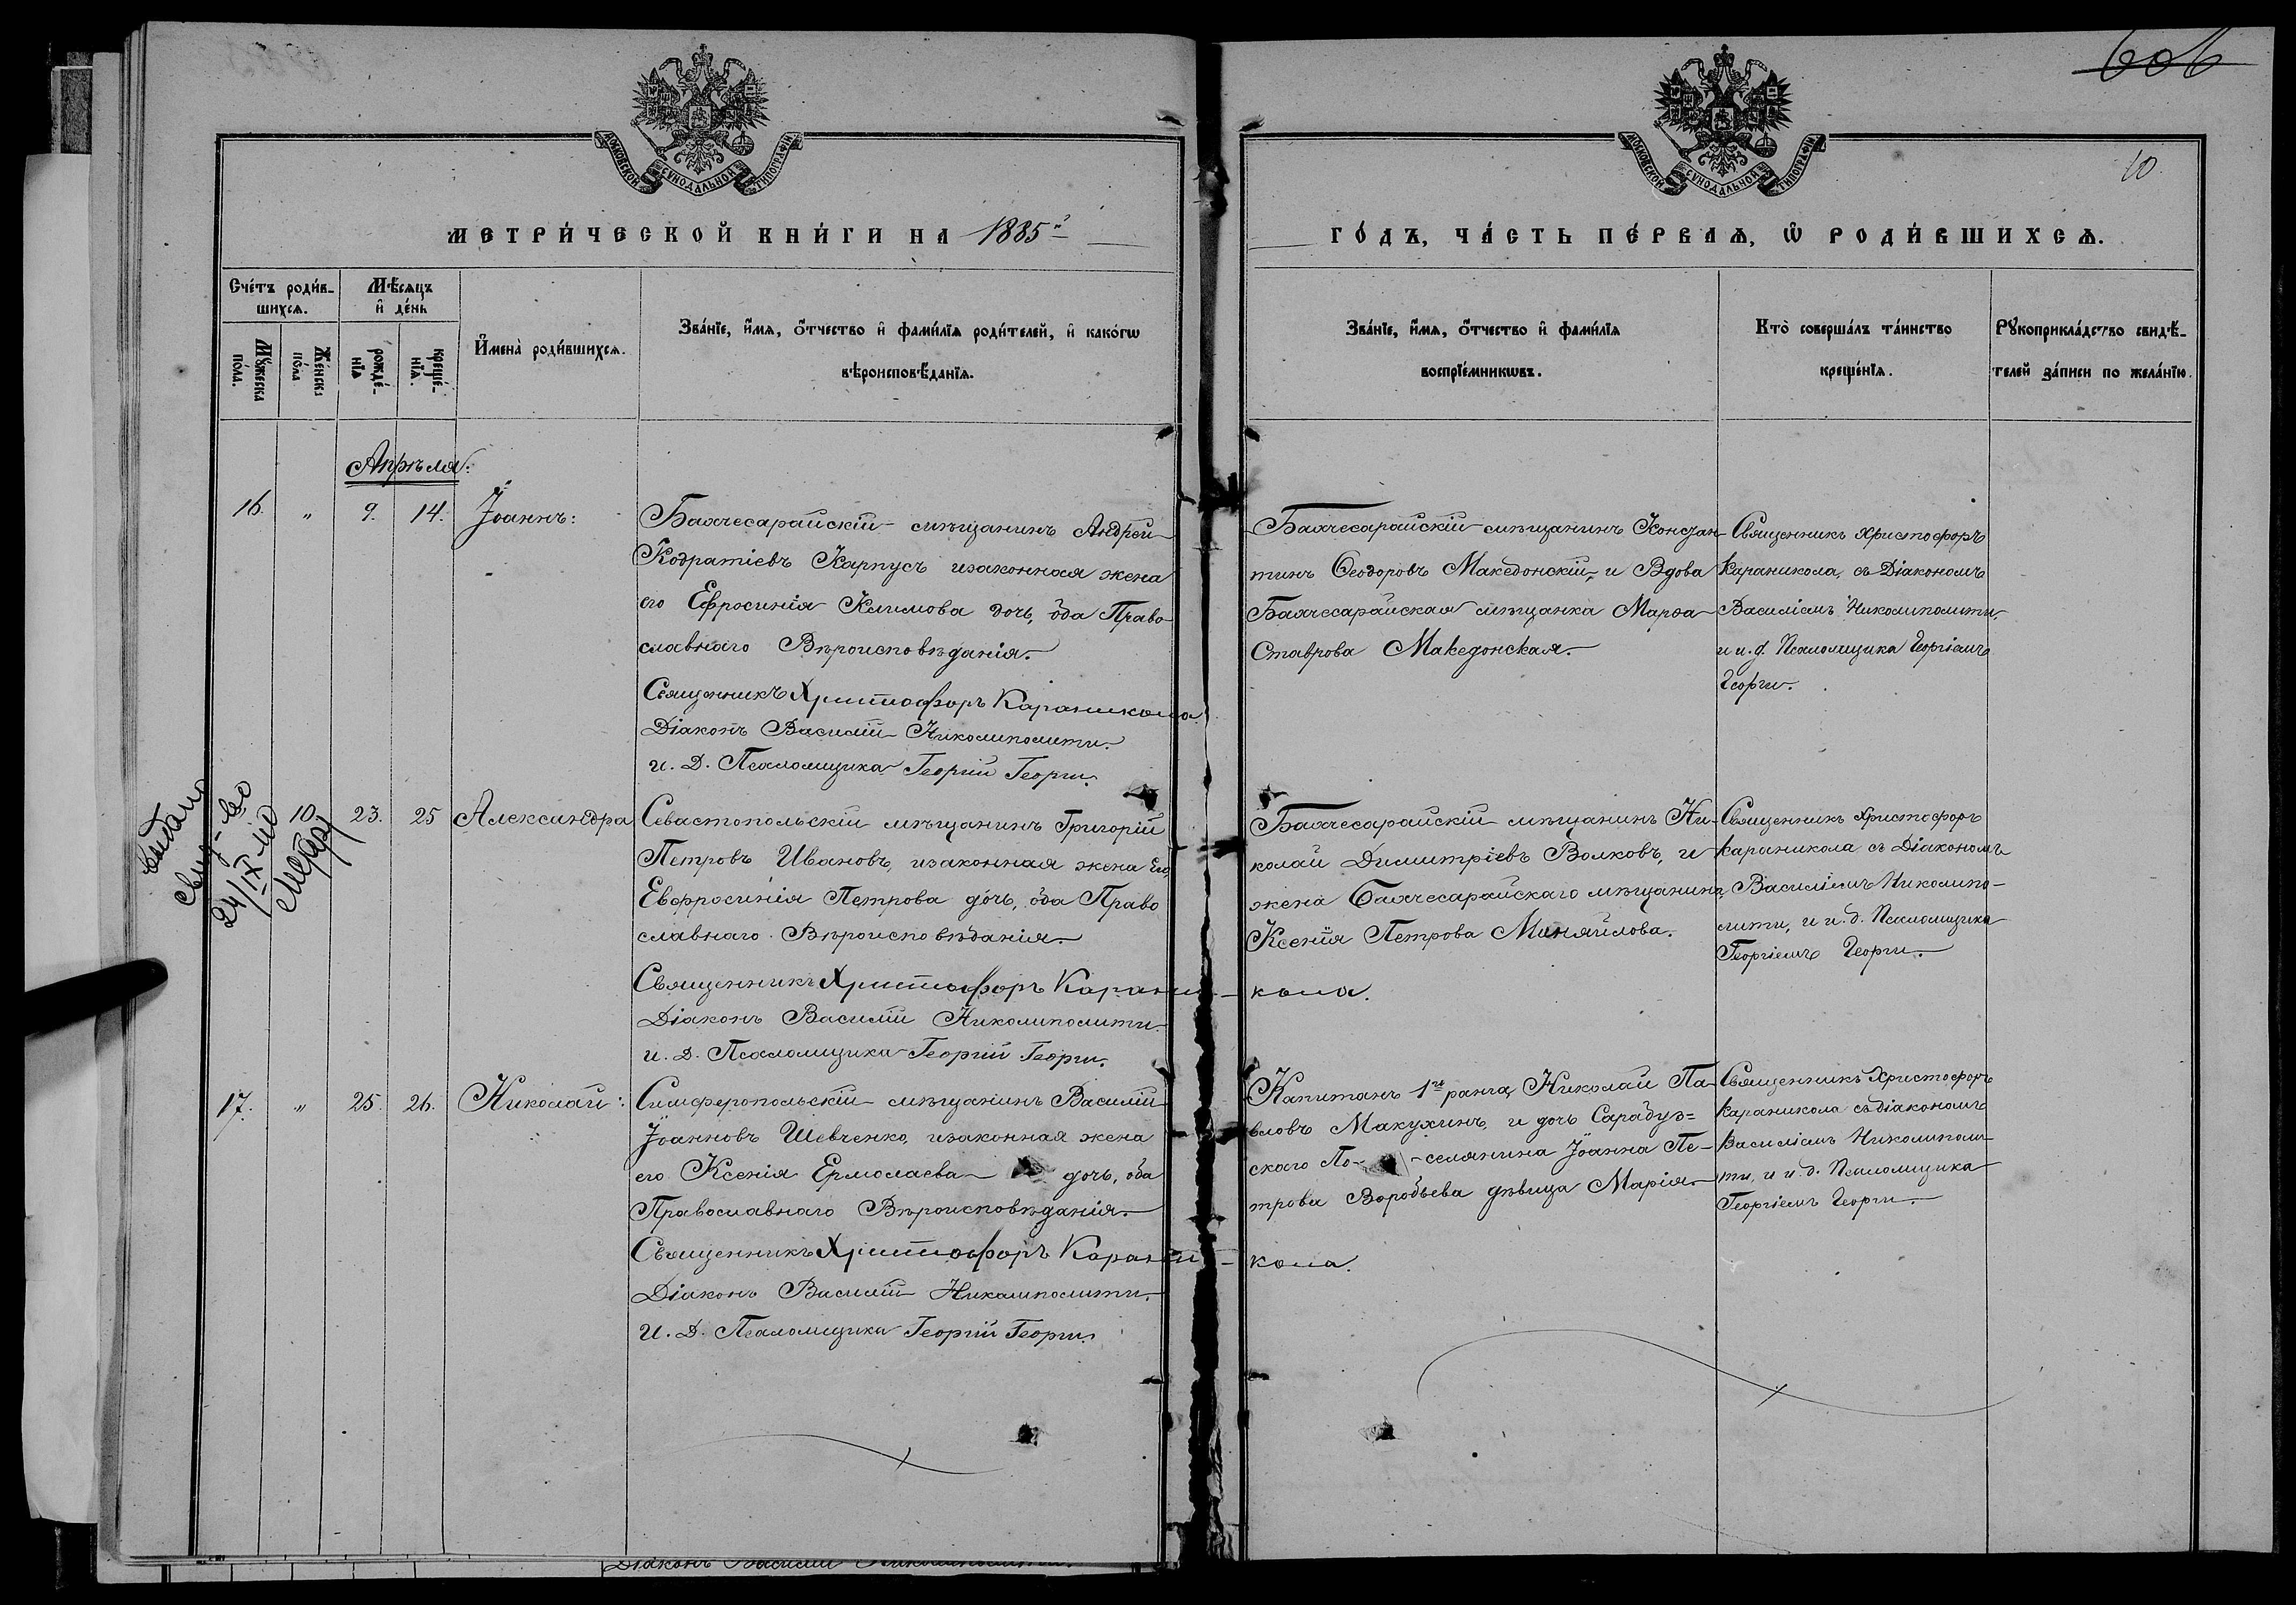 606
10.
МОСКОВСКОЙ СУНОДАЛЬНОЙ ТИПОГРАФІИ
МОСКОВСКОЙ СУНОДАЛЬНОЙ ТИПОГРАФІИ
МЕТРИ́ЧЕСКОЙ КНИ́ГИ НА 1885й
ГО́ДЪ, ЧА́СТЬ ПЕ́РВАѦ, Ѡ РОДИ́ВШИХСѦ.
Сче́тъ роди́в-
шихсѧ.
Мꙋ́жеска
по́ла.
Же́нска
по́ла
Мѣ́сѧцъ
и҆ де́нь
рожде́-
нїѧ
креще́-
нїѧ.
И҆мена̀ роди́вшихсѧ.
Зва́нїе, и҆́мѧ, ѻ҆́тчество и҆ фами́лїѧ роди́телей, и҆ како́гѡ
вѣроисповѣ́данїѧ.
Зва́нїе, и҆́мѧ, ѻ҆́тчество и҆ фами́лїѧ
воспрїе́мникѡвъ.
Кто̀ соверша́лъ та́инство
креще́нїѧ.
Рꙋкоприкла́дство свидѣ́-
телей за́писи по жела́нїю.
Апрѣля:
16. " 9. 14. Іоаннъ:
Бахчесарайскій мѣщанинъ Андрей
Кодратіевъ Карпусъ изаконная жена
его Ефросинія Климова дочь, оба Право
славнаго Вѣроисповѣданія.
Священникъ Христофоръ Караникола.
Діаконъ Василій Николиполити.
и. д. Псаломщика Георгій Георги.
Бахчесарайскій мѣщанинъ Констан
тинъ Ѳеодоровъ Македонскій, и Вдова
Бахчесарайская мѣщанка Марѳа
Ставрова Македонская.
Священникъ Христофоръ
Караникола, съ Діакономъ
Василіемъ Николиполити,
и и. д. Псаломщика Георгіемъ
Георги.
выдано
свид-во
24/IX-110
10 23. 25 Александра
Севастопольскій мѣщанинъ Григорій
Петровъ Ивановъ, изаконная жена его,
Евфросинія Петрова дочь, оба Право
славнаго Вѣроисповѣданія.
Священникъ Христофоръ Карани-кола.
Діаконъ Василій Николиполити.
и. д. Псаломщика Георгій Георги.
Бахчесарайскій мѣщанинъ Ни-
колай Димитріевъ Волковъ, и
жена Бахчесарайскаго мѣщанина,
Ксенія Петрова Миняйлова.
Священникъ Христофоръ
Караникола съ Діакономъ
Василіемъ Николипо-
лити, и и. д. Псаломщика
Георгіемъ Георги.
17. " 25. 26. Николай:
Симферопольскій мѣщанинъ Василій
Іоанновъ Шевченко, изаконная жена
его Ксенія Ермолаева дочь, оба
Православнаго Вѣроисповѣданія.
Священникъ Христофоръ Карани-кола.
Діаконъ Василій Николиполити.
И. Д. Псаломщика Георгій Георги.
Капитанъ 1го ранга, Николай Па-
вловъ Макухинъ, и дочь Сарабуз=
скаго По- -селянина Іоанна Пе-
трова Воробьева дѣвица Марія.
Священникъ Христофоръ
Караникола съ діакономъ
Василіемъ Николиполи
ти, и и. д. Псаломщика
Георгіемъ Георги.
Діаконъ Василій Николиполити.